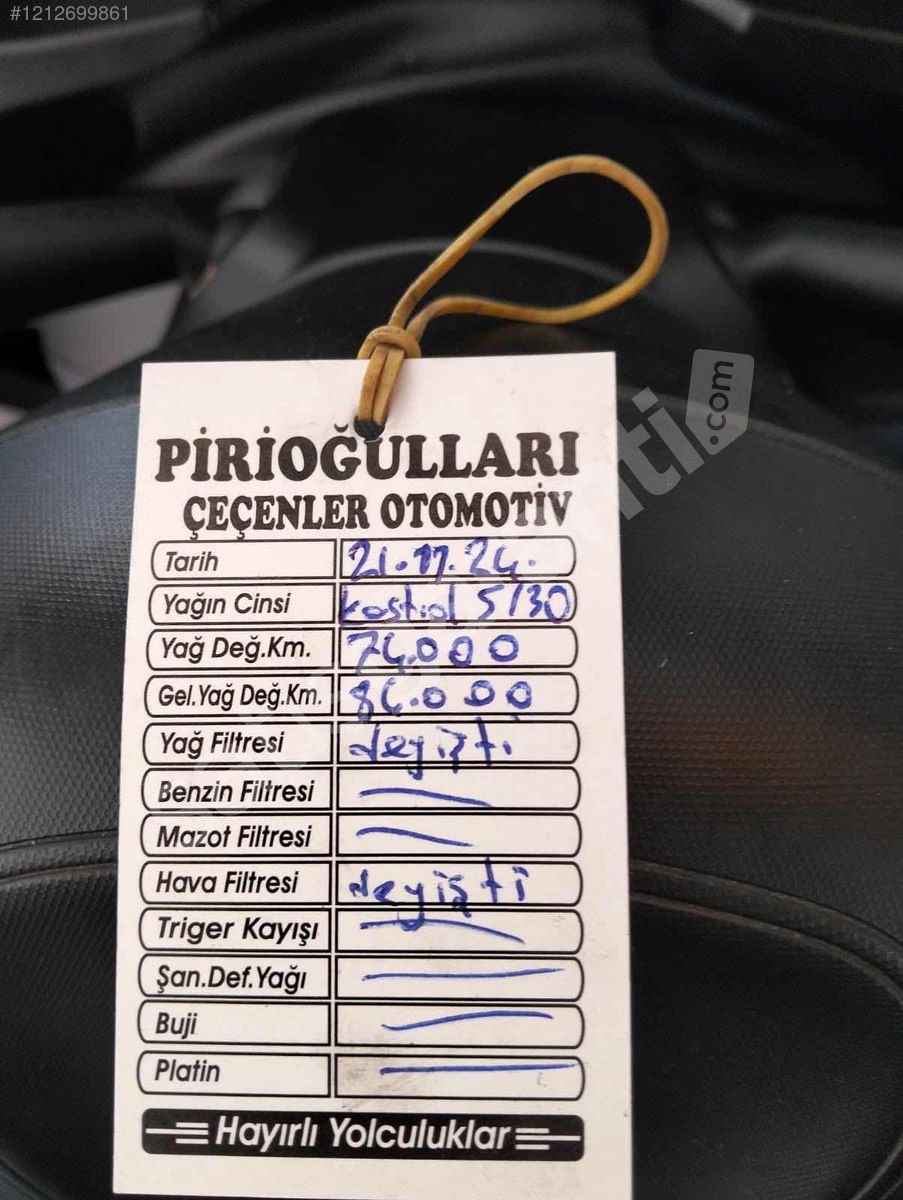 #1212699861
PİRİOĞULLARI
ÇEÇENLER OTOMOTİV
Tarih 21.11.24.
Yağın Cinsi kastrol 5/30
Yağ Değ.Km. 74.000
Gel.Yağ Değ.Km. 84.000
Yağ Filtresi deyişti
Benzin Filtresi
Mazot Filtresi
Hava Filtresi deyişti
Triger Kayışı
Şan.Def.Yağı
Buji
Platin
Hayırlı Yolculuklar
.com